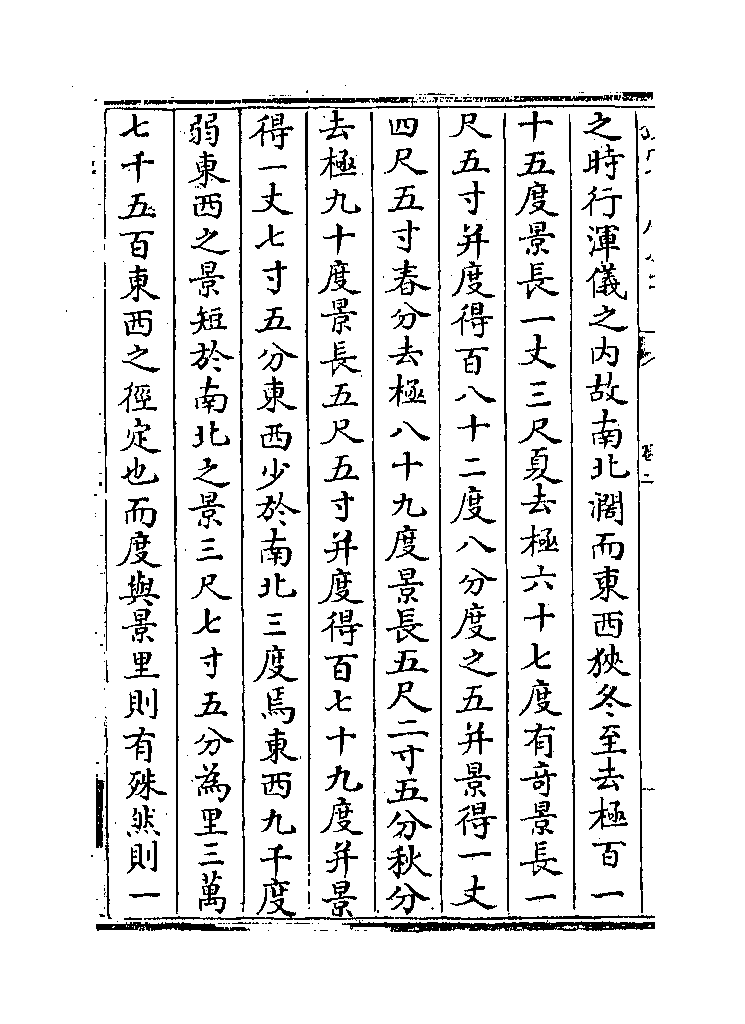 之時行渾儀之内故南北濶而東西狹冬至去極百一
十五度景長一丈三尺夏去極六十七度有竒景長一
尺五寸并度得百八十二度八分度之五并景得一丈
四尺五寸春分去極八十九度景長五尺二寸五分秋分
去極九十度景長五尺五寸并度得百七十九度并景
得一丈七寸五分東西少於南北三度焉東西九千度
弱東西之景短於南北之景三尺七寸五分為里三萬
七千五百東西之徑定也而度與景里則有殊然則一